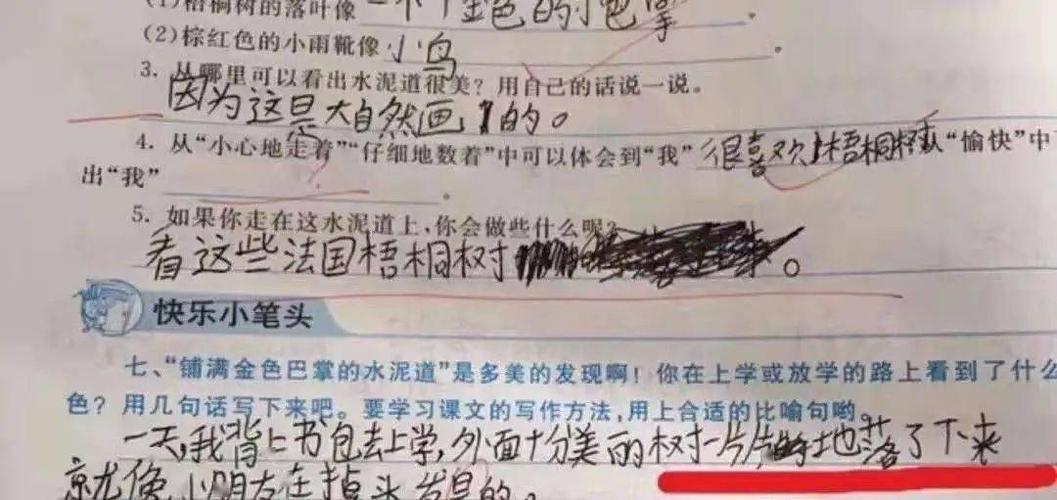 (1)梧桐树的落叶像一个个金色的小巴掌
(2)棕红色的小雨靴像 小鸟 。
3. 从哪里可以看出水泥道很美?用自己的话说一说。
因为这是大自然画的。
4. 从“小心地走着”“仔细地数着”中可以体会到“我” 很喜欢梧桐树 从“愉快”中
出“我” 。
5. 如果你走在这水泥道上,你会做些什么呢?
看这些法国梧桐树 。
快乐小笔头
七、“铺满金色巴掌的水泥道”是多美的发现啊!你在上学或放学的路上看到了什么
色?用几句话写下来吧。要学习课文的写作方法,用上合适的比喻句哟。
一天,我背上书包去上学,外面十分美丽树一片片地落了下来
就像小朋友在掉头发是的。